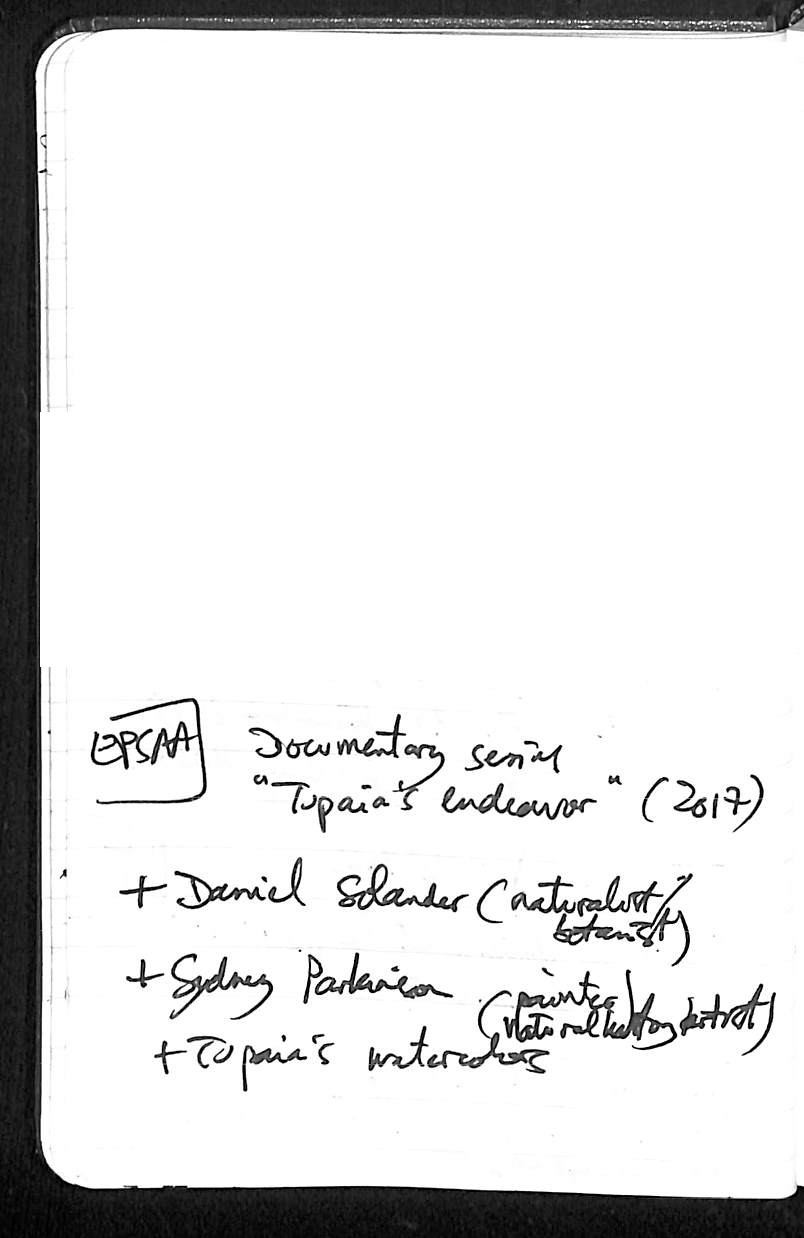 EPSAA Documentary serial
"Tupaia's endeavor" (2017)
+ Daniel Solander (naturalist/
botanist)
+ Sydney Parkinson (painter/
natural history artist)
+ Tupaia's watercolors